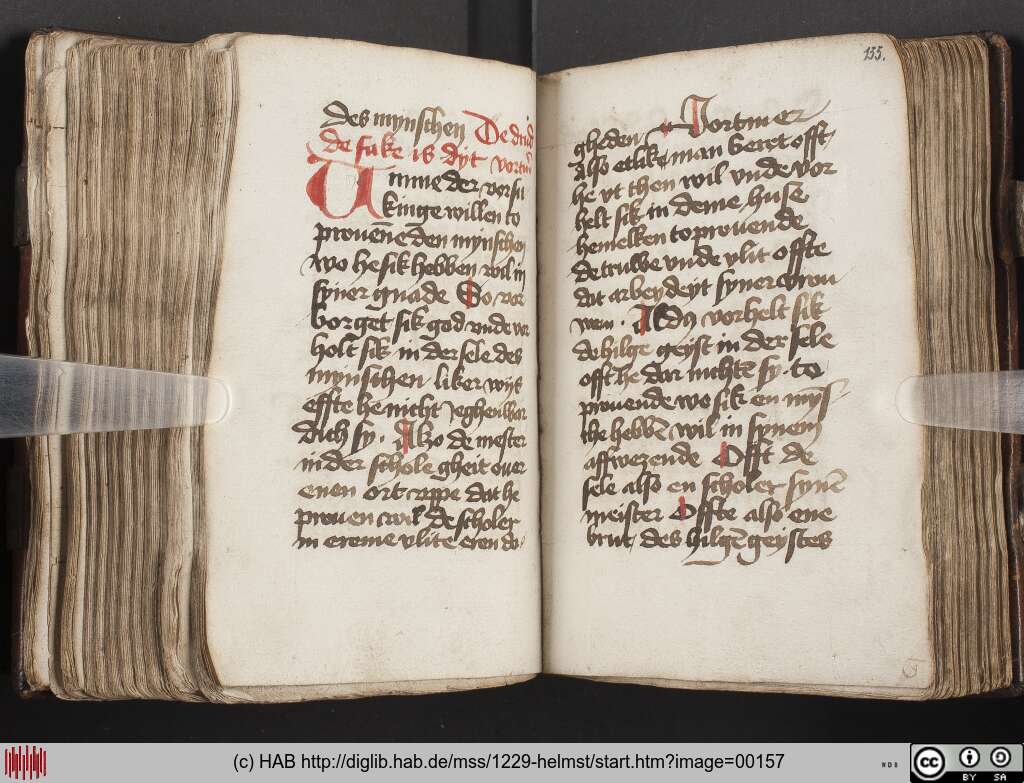 des mynschen De drid
de sake is dyt vortm̄
Umme der vorsu
kinge willen to
prouen̄e den mynschen
wo he sik hebben wil in
syner gnade So vor
borget sik god vnde vor
holt sik in der sele des
mynschen liker wijt
effte he nicht jeghenwar
dich sy. Alzo de mester
in der schole gheit ouer
enen ort vppe dat he
prouen wil de scholer
in ereme vlite eren do
155.
Vortmer
gheden
also etlike man beret offt
he vt then wil vnde vor
helt sik in deme huse
hemelken to prouende
de truwe vnde vlit offte
dat arbeydeyt syner vrou
wen. Aldus vorhelt sik
de hilge geyst in der sele
offt he dar nichtē sy. to
prouende wo sik en myns
che hebbē wil in synem
affwezende Offt de
sele also en scholer synē
meister Offte also ene
brut des hilgē geystes
(c) HAB http://diglib.hab.de/mss/1229-helmst/start.htm?image=00157
WDB
cc BY SA